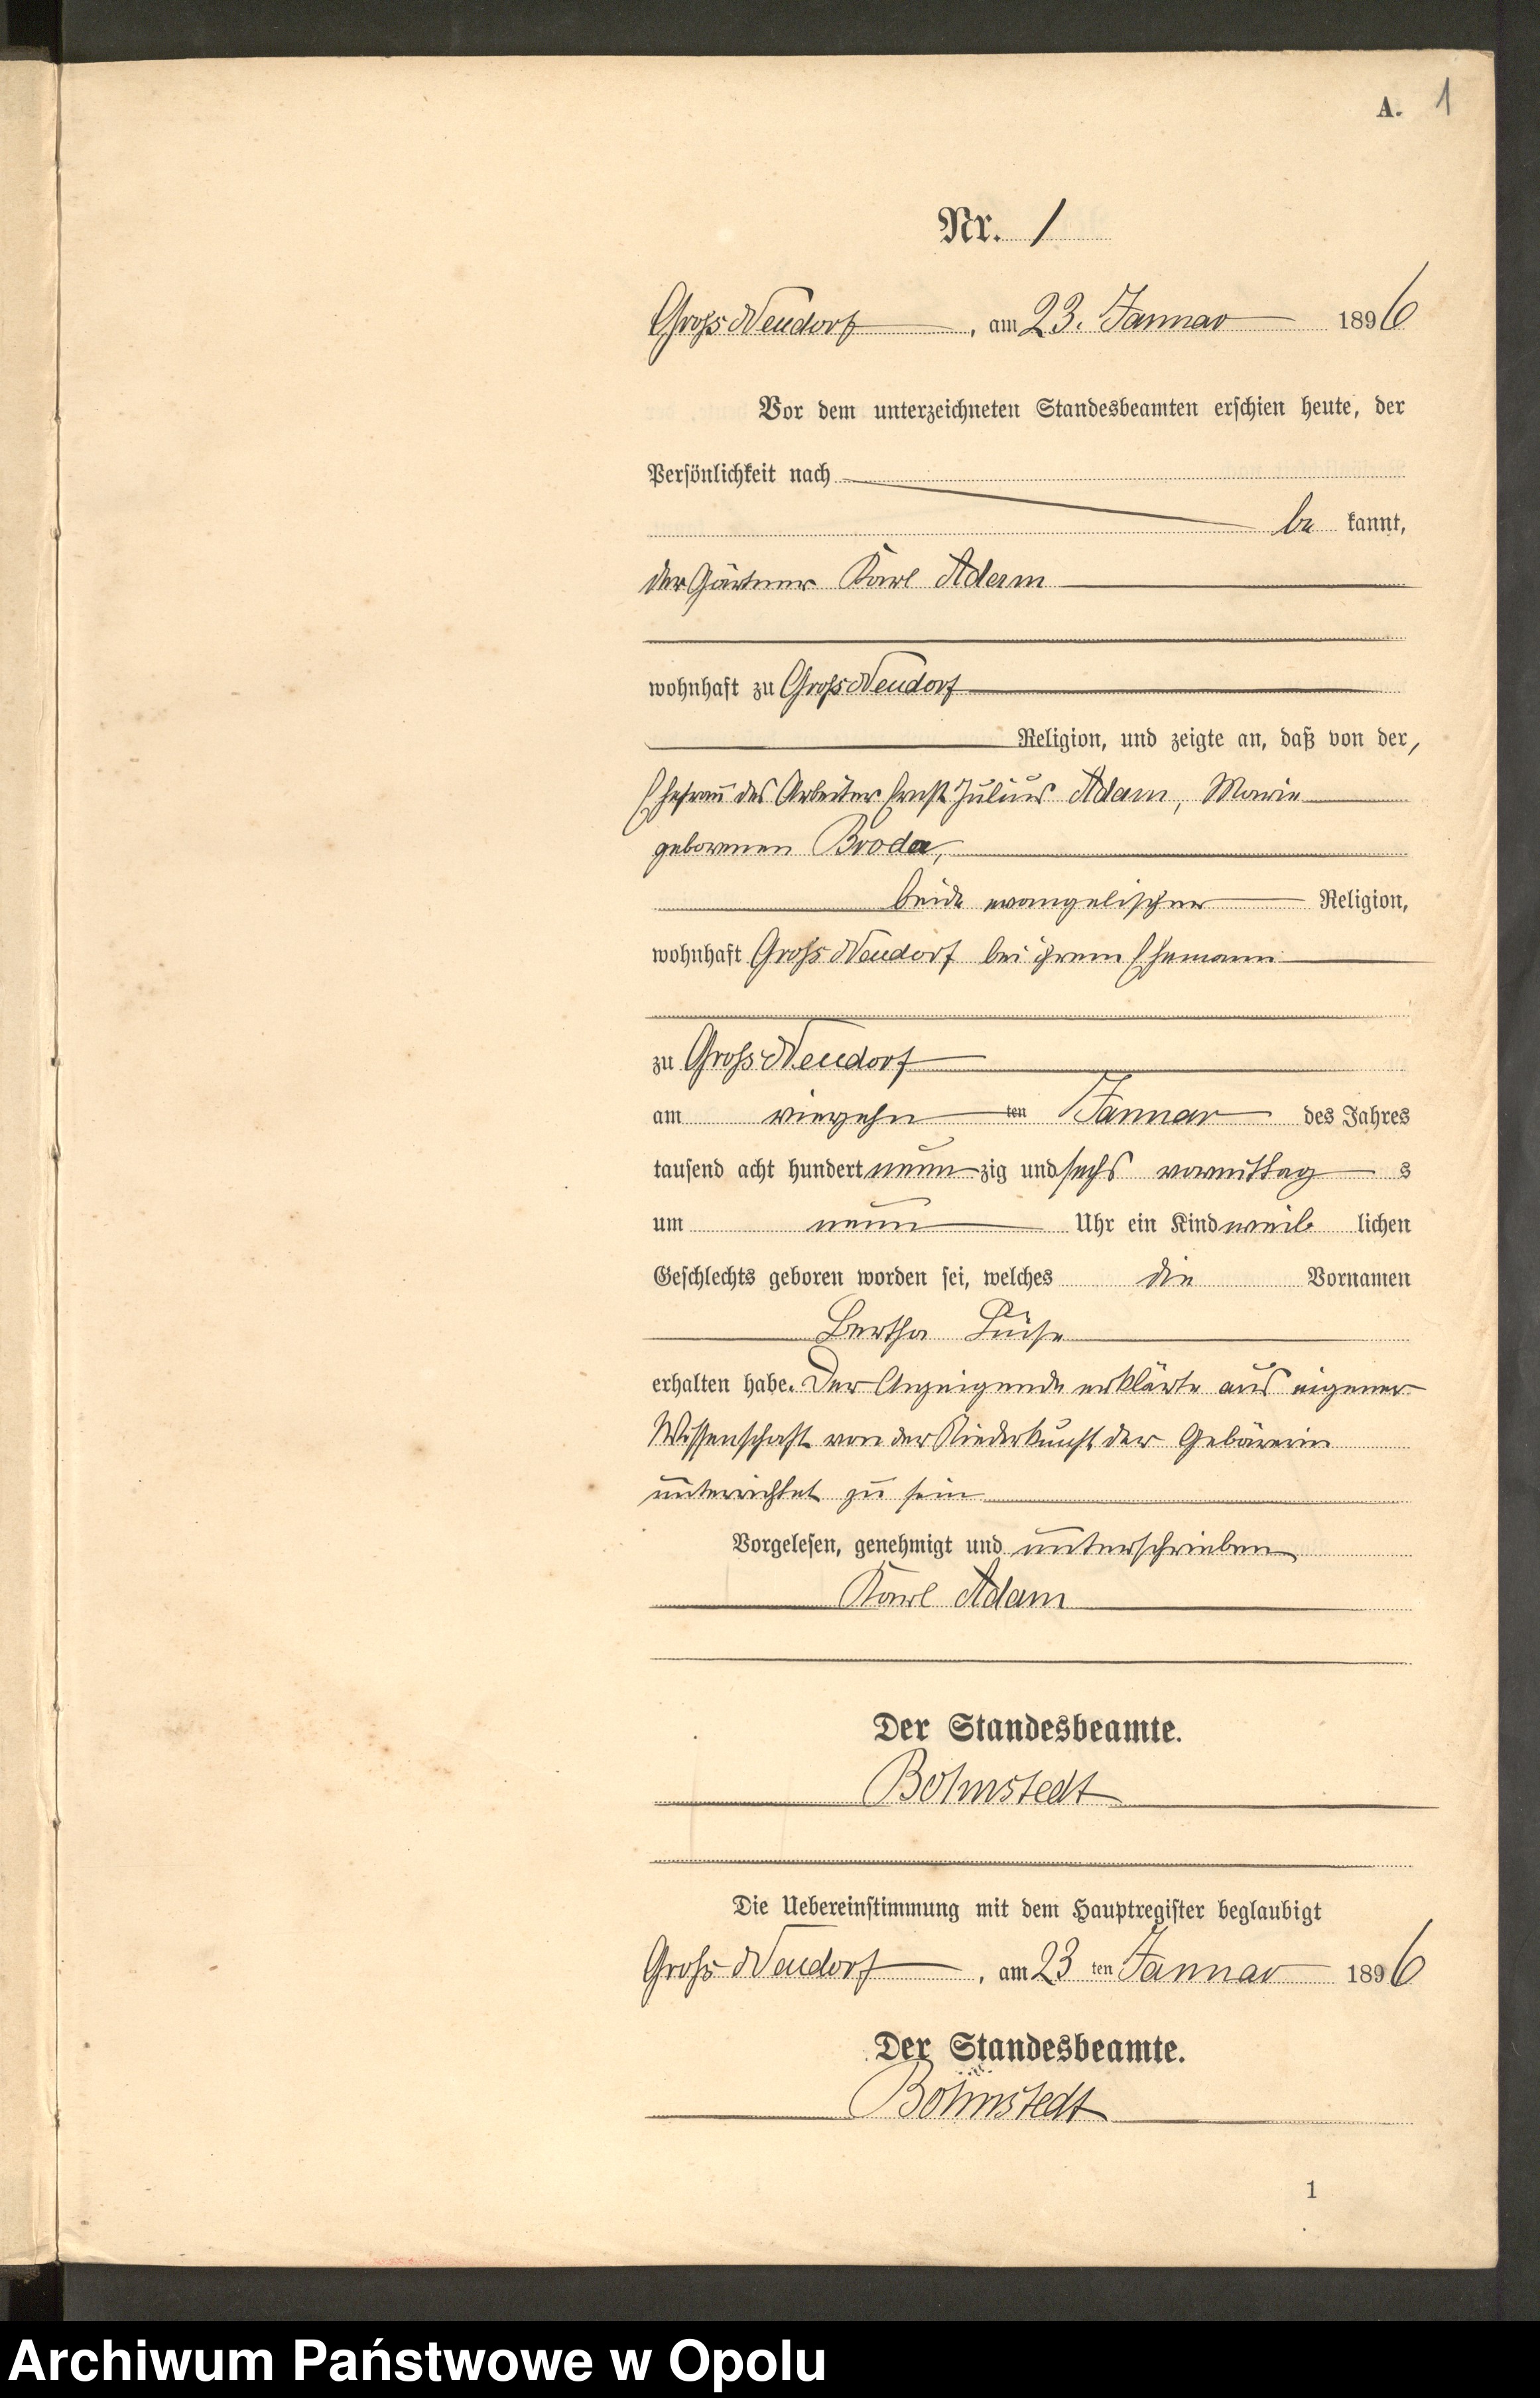 A. 1
Nr. 1
Groß Neudorf, am 23. Januar 1896
Vor dem unterzeichneten Standesbeamten erschien heute, der
Persönlichkeit nach
be kannt,
der Gärtner Karl Adam
wohnhaft zu Groß Neudorf
Religion, und zeigte an, daß von der,
Ehefrau des Arbeiter Ernst Julius Adam, Marie
geborenen Broda,
beide evangelischer Religion,
wohnhaft Groß Neudorf bei ihrem Ehemann
zu Groß Neudorf
am vierzehn ten Januar des Jahres
tausend acht hundert neun zig und sechs vormittag s
um neun Uhr ein Kind weib lichen
Geschlechts geboren worden sei, welches die Vornamen
Bertha Luise
erhalten habe. Der Anzeigende erklärte aus eigener
Wissenschaft von der Niederkunft der Gebärerin
unterrichtet zu sein
Vorgelesen, genehmigt und unterschrieben
Karl Adam
Der Standesbeamte.
Bolmstedt
Die Uebereinstimmung mit dem Hauptregister beglaubigt
Groß Neudorf, am 23 ten Januar 1896
Der Standesbeamte.
Bolmstedt
1
Archiwum Państwowe w Opolu